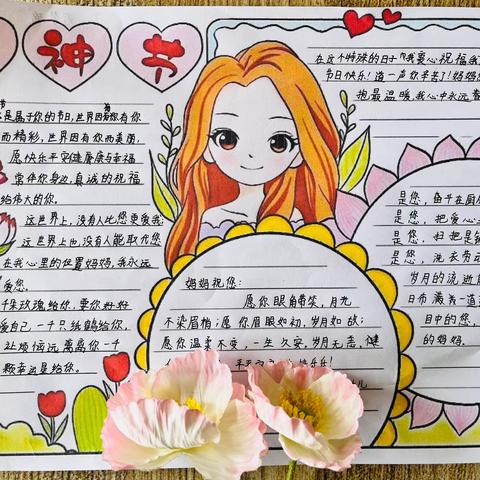 神 节
是属于你的节日,世界因你有你
而精彩,世界因有你而美丽,
愿快乐平安健康与幸福
常伴你身边,真诚的祝福
给伟大的你。
这世界上,没有人比您更爱我;
这世界上也没有人能取代您
在我心里的位置妈妈,我永远
爱您。
千朵玫瑰给你,要你好好
爱自己一千只纸鹤给你,
让烦恼远离离你一千
颗幸运星给你。
在这个特殊的日子
节日快乐!道一声你辛苦了!妈妈
抱最温暖,我心中永远
是您,
是您,把爱心
是您,扫把是
是您,洗衣劳动
岁月的流逝
日历
目中的您,
的妈妈.
妈妈祝您:
愿你眼角带笑,月光
不染眉梢;愿你眉眼如初,岁月如故;
愿你温柔不变,一生久安,岁月无恙,健